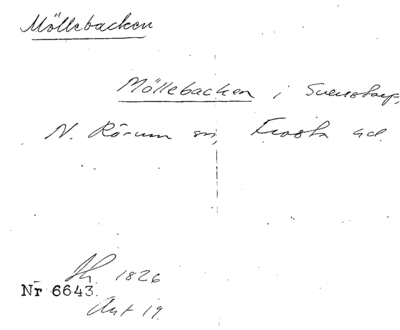 Möllebacken
Möllebacken i Svenstorp,
N. Rörum sn, Frosta hd.
Sk. 1826
Nr 6643.
Akt 19.